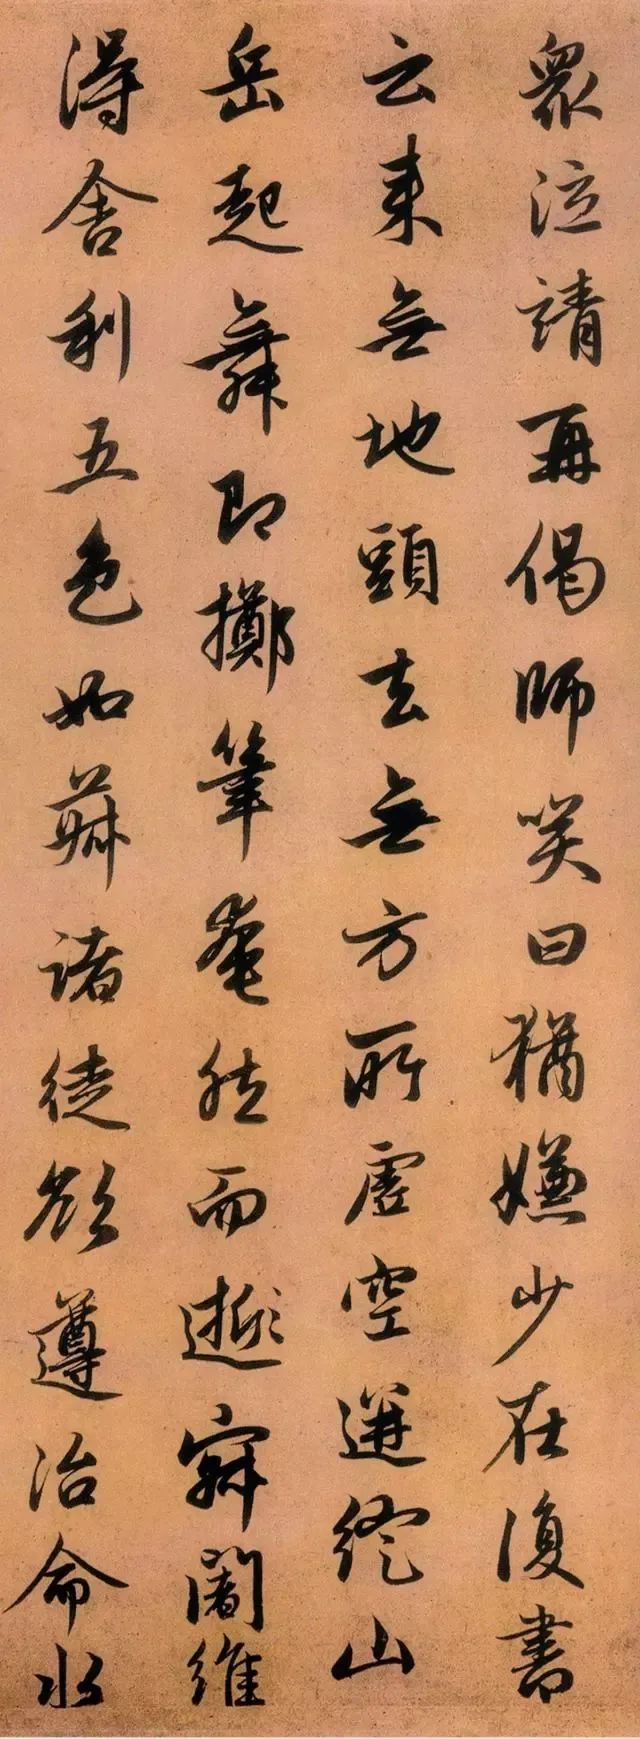 眾泣請再偈師笑曰猶嫌少在復書
云來無地頭去無方所虛空迸綻山
岳起舞即擲筆奄然而逝寂闍維
得舍利五色如菽諸徒欲遵治命水